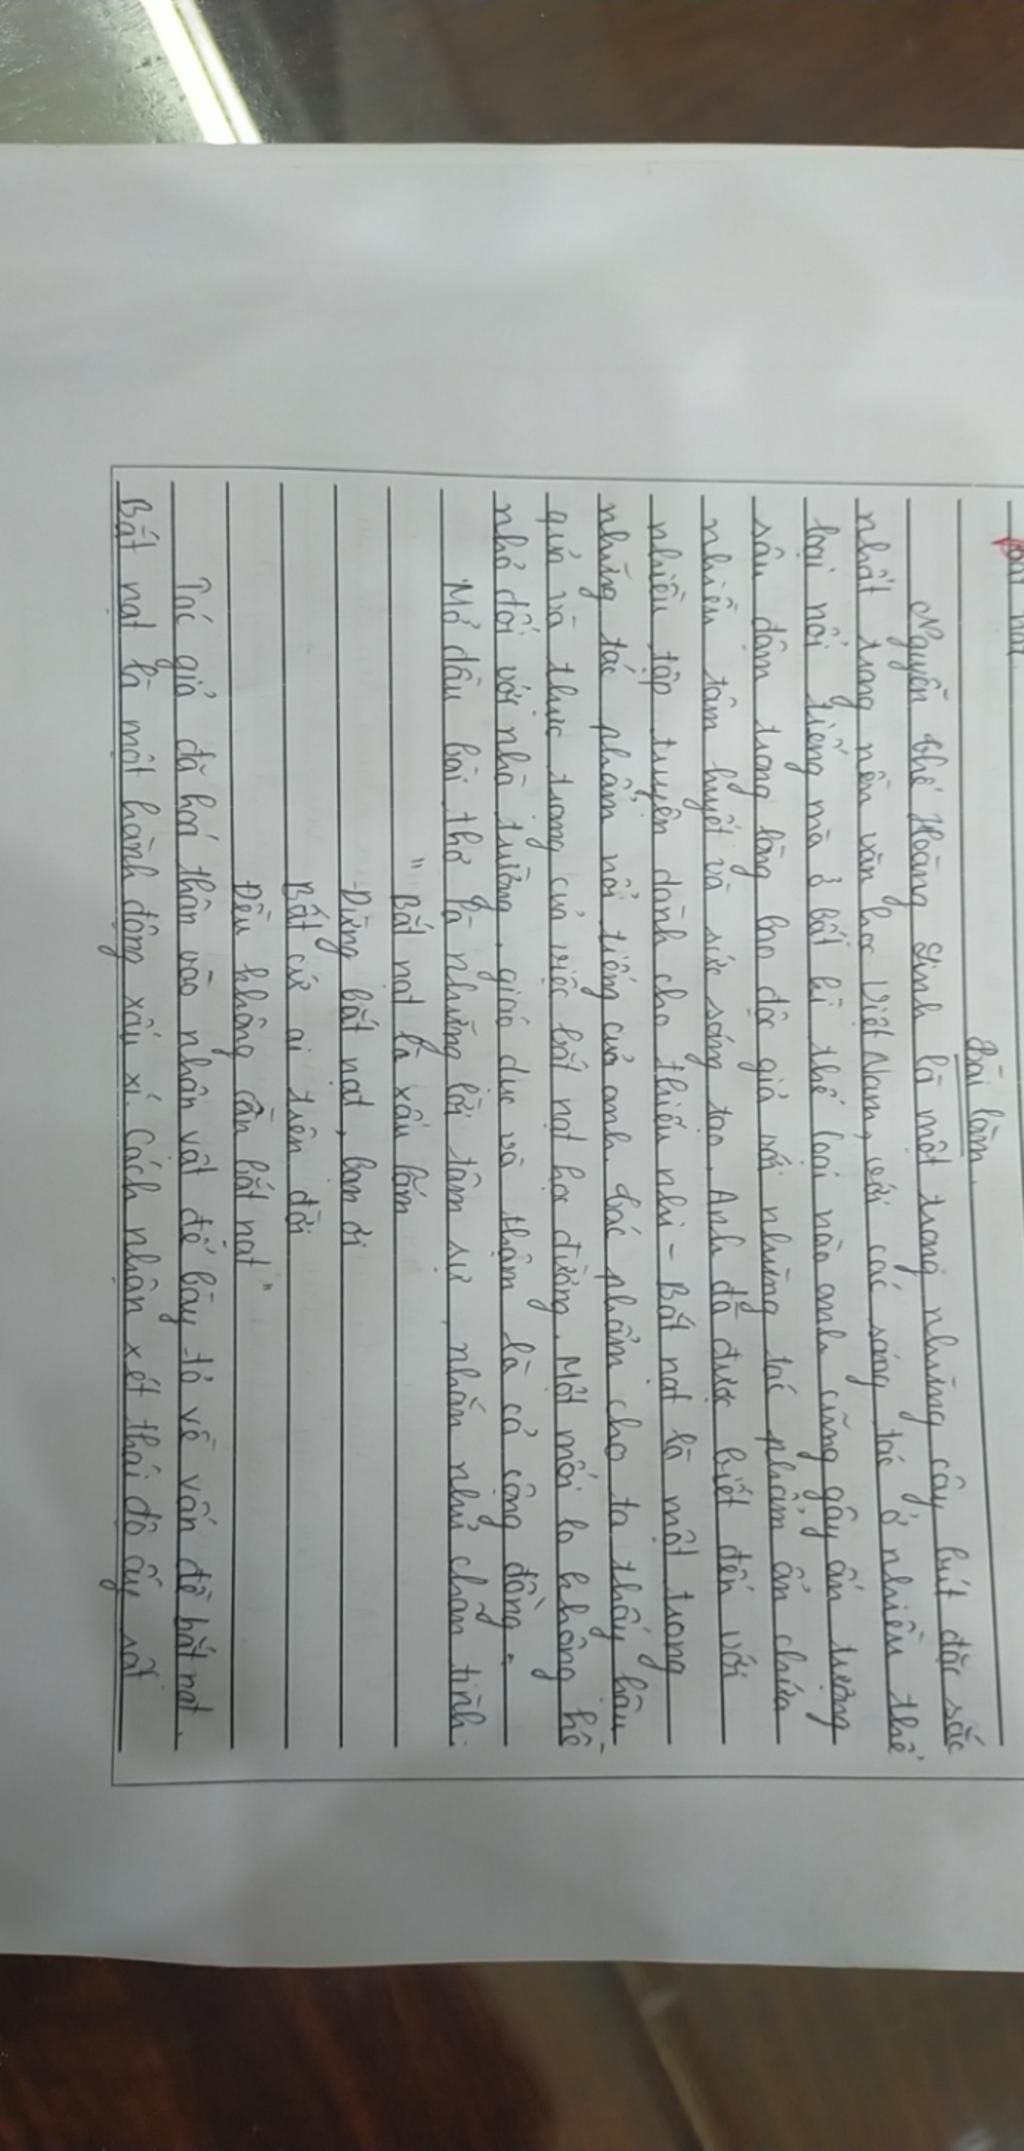 Bắt nạt.
Bài làm.
Nguyễn Thế Hoàng Linh là một trong những cây bút đặc sắc
nhất trong nền văn học Việt Nam, với các sáng tác ở nhiều thể
loại nổi tiếng mà ở bất kì thể loại nào anh cũng gây ấn tượng
sâu đậm trong lòng bao độc giả với những tác phẩm ẩn chứa
nhiều tâm huyết và sức sáng tạo. Anh đã được biết đến với
nhiều tập truyện dành cho thiếu nhi - Bắt nạt là một trong
những tác phẩm nổi tiếng của anh. Tác phẩm cho ta thấy hậu
quả và thực trạng của việc bắt nạt học đường. Một mối lo không hề
nhỏ đối với nhà trường, giáo dục và thậm là cả cộng đồng.
Mở đầu bài thơ là những lời tâm sự, nhắn nhủ chân tình.
"Bắt nạt là xấu lắm
Đừng bắt nạt, bạn ơi
Bất cứ ai trên đời
Đều không cần bắt nạt"
Tác giả đã hoá thân vào nhân vật để bày tỏ về vấn đề bắt nạt.
Bắt nạt là một hành động xấu xí. Cách nhận xét thái độ ấy rất